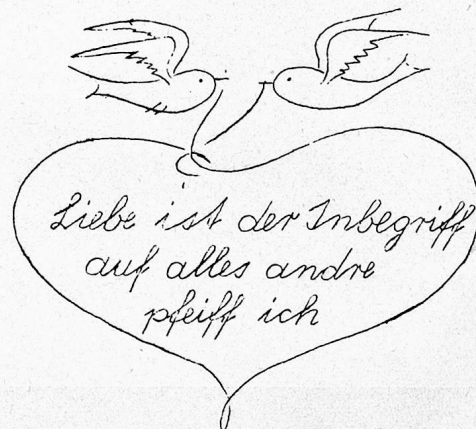 Liebe ist der Inbegriff
auf alles andre
pfeiff ich